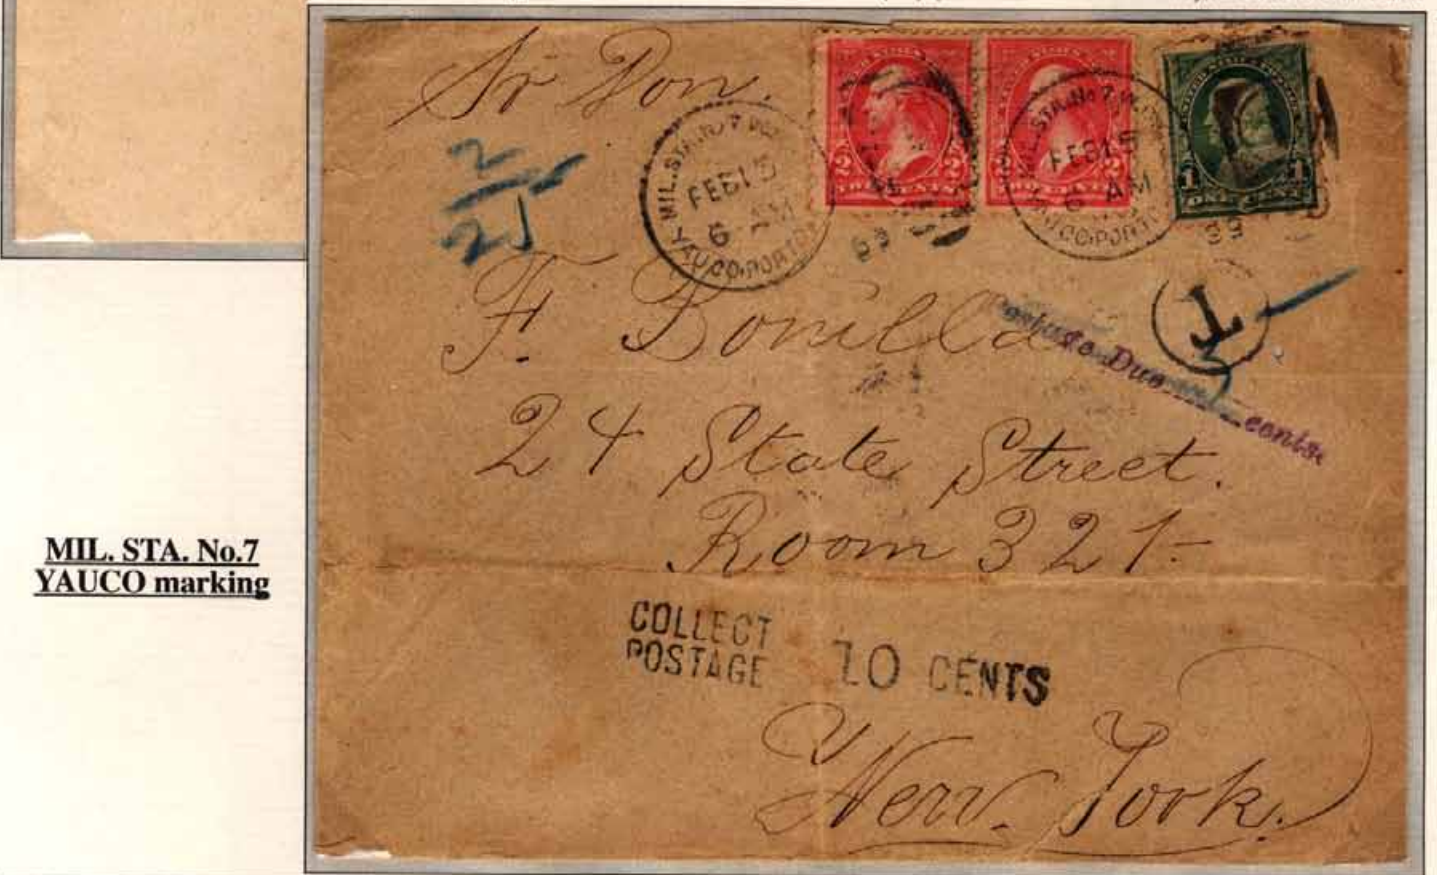 MIL. STA. No.7
YAUCO marking
Sr Don.
2
25
MIL.STA.No.7
FEB 15
6 AM
YAUCO.PORTO
99
2 2
TWO CENTS
2 2
MIL.STA.No.7
FEB 15
6 AM
YAUCO.PORTO
99
UNITED STATES
1 1
ONE CENT
T
F. Bonilla
Postage Due cents.
24 State Street.
Room 321-
COLLECT
POSTAGE 10 CENTS
New York.